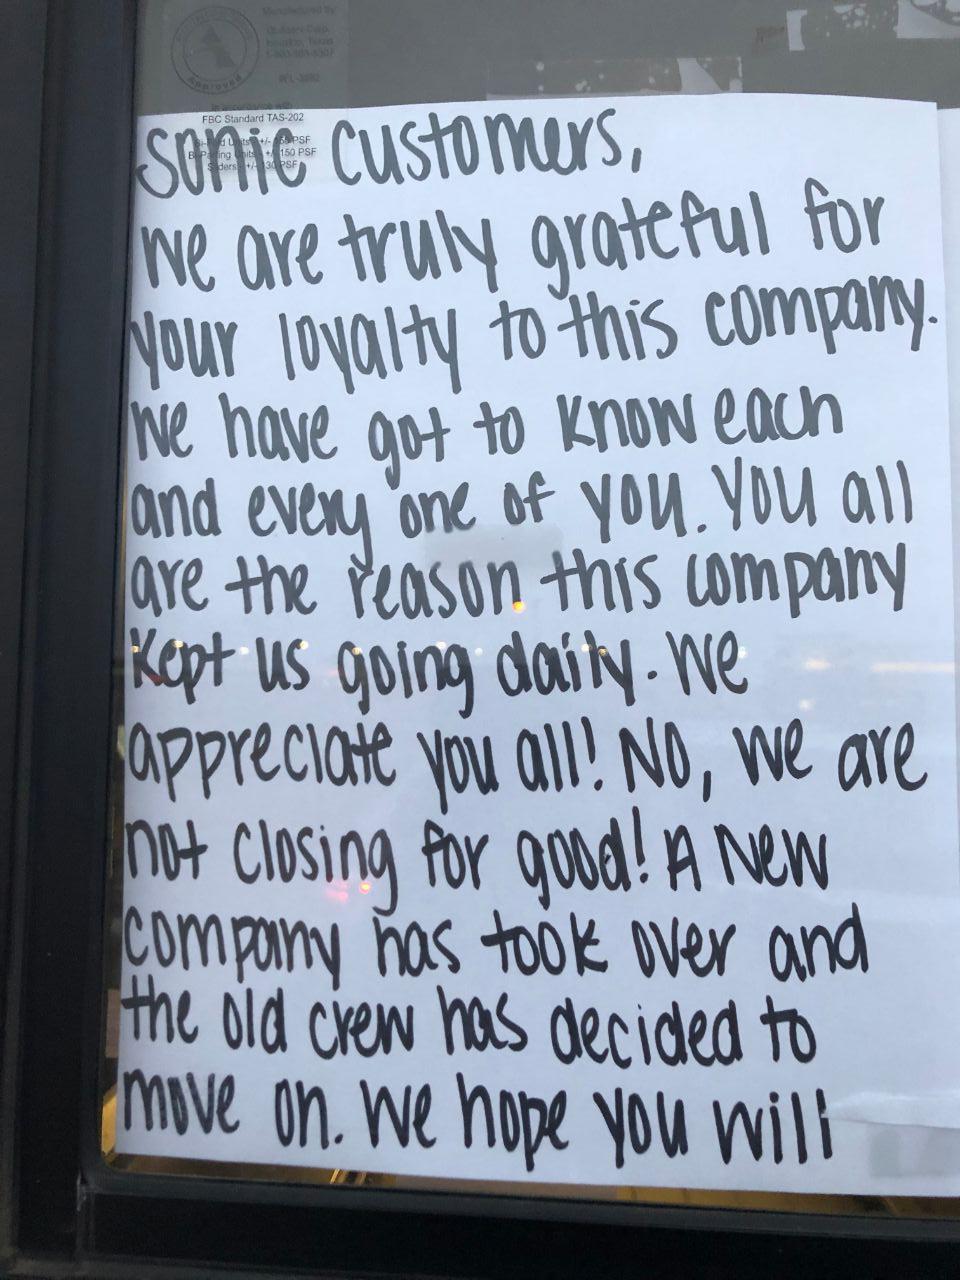 Manufactured by
Houston, Texas
Approved
In accordance with
FBC Standard TAS-202
Bi-Fold Units +/- 155 PSF
Bi-Parting Units +/- 150 PSF
Sliders +/- 130 PSF
Sonic Customers,
We are truly grateful for
your loyalty to this company.
We have got to know each
and every one of you. You all
are the reason this company
kept us going daily. We
appreciate you all! No, we are
not closing for good! A New
company has took over and
the old crew has decided to
move on. We hope you will